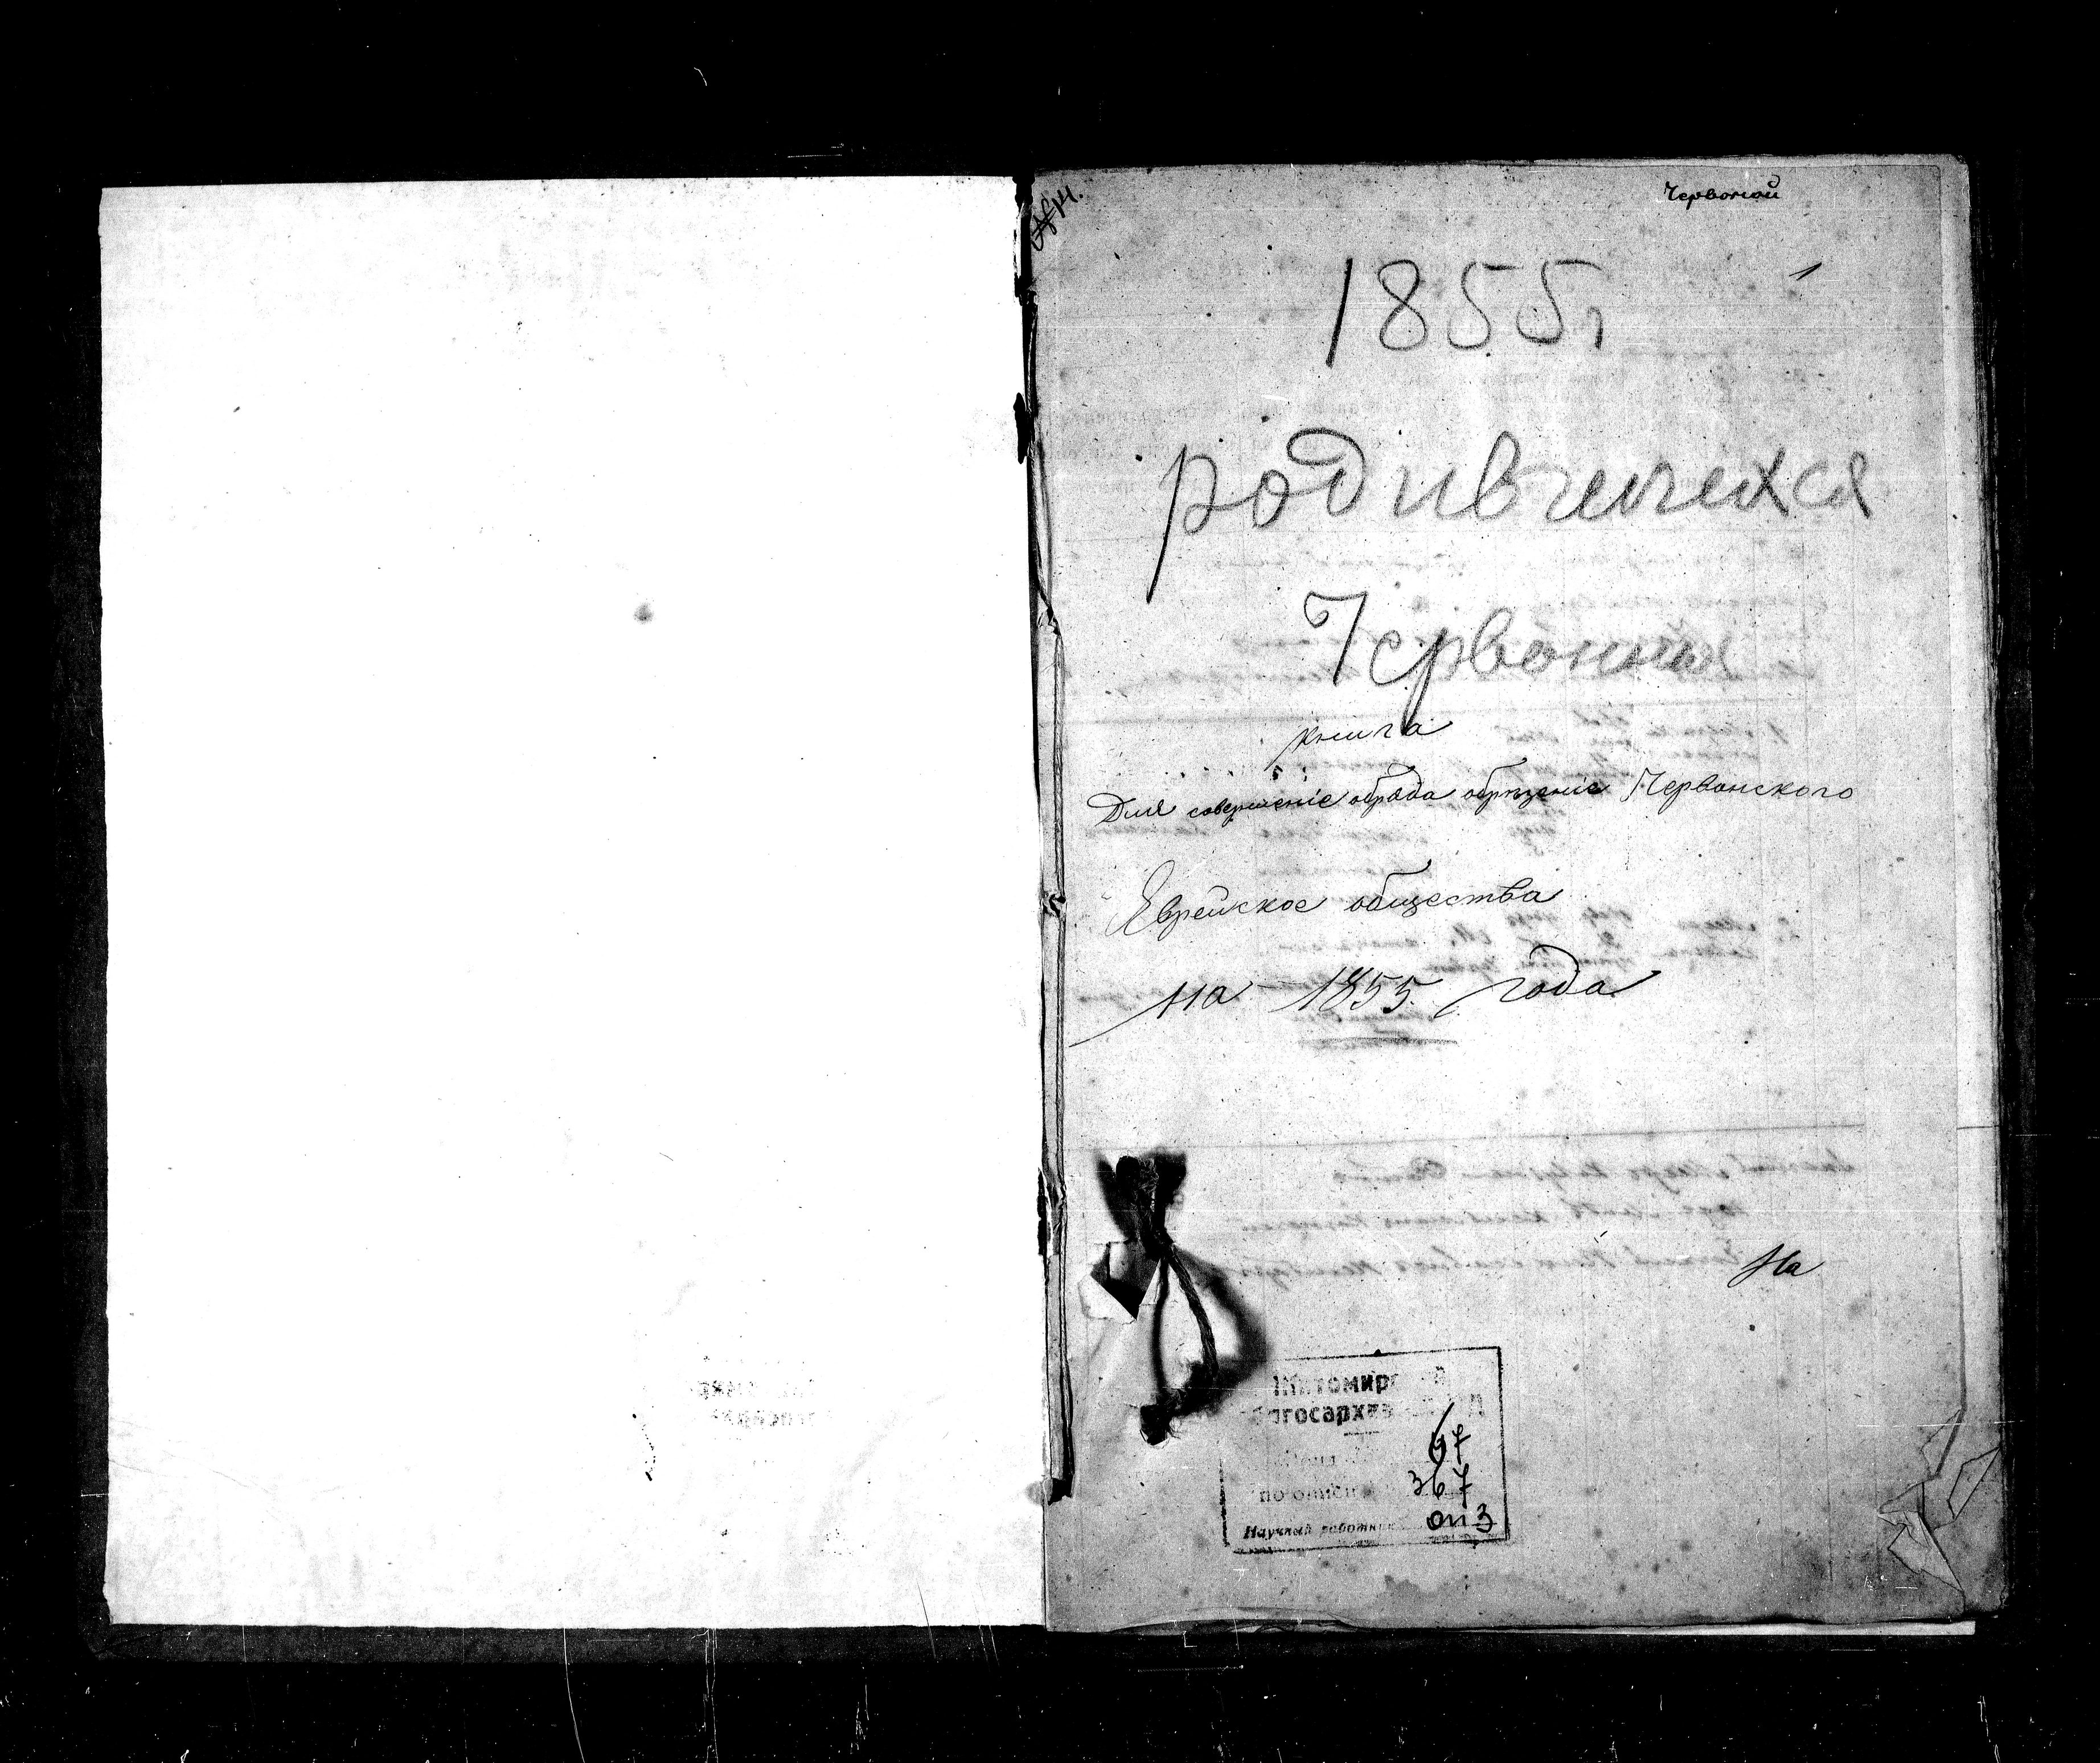 Червоной
1
1855г
родившихся
Червонная
книга
Для совершеніе обряда обрѣзеніе Червонского
Еврейское общества
на 1855 года
На
Житомирс й
огосархив
67
по описи 367
Научный работник оп 3